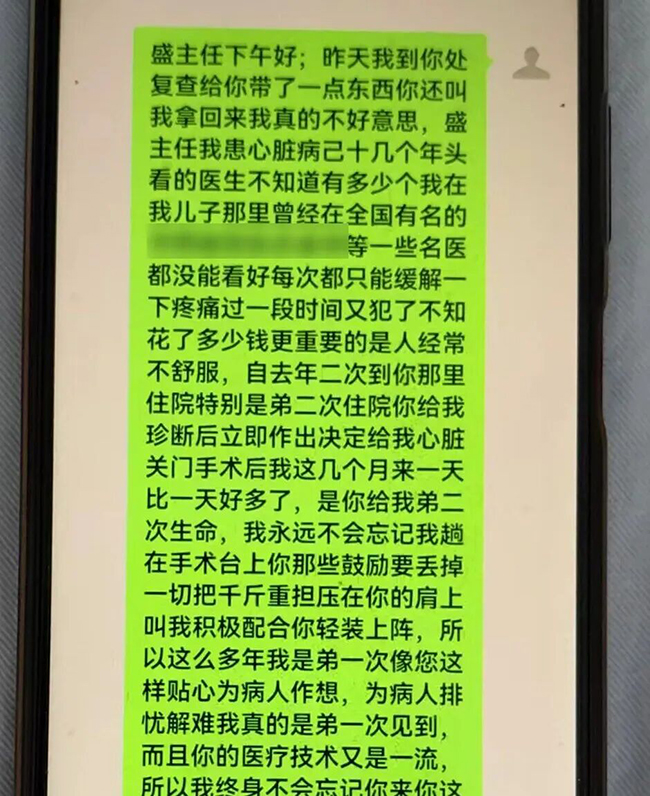 盛主任下午好；昨天我到你处
复查给你带了一点东西你还叫
我拿回来我真的不好意思，盛
主任我患心脏病己十几个年头
看的医生不知道有多少个我在
我儿子那里曾经在全国有名的
等一些名医
都没能看好每次都只能缓解一
下疼痛过一段时间又犯了不知
花了多少钱更重要的是人经常
不舒服，自去年二次到你那里
住院特别是弟二次住院你给我
珍断后立即作出决定给我心脏
关门手术后我这几个月来一天
比一天好多了，是你给我弟二
次生命，我永远不会忘记我趟
在手术台上你那些鼓励要丢掉
一切把千斤重担压在你的肩上
叫我积极配合你轻装上阵，所
以这么多年我是弟一次像您这
样贴心为病人作想，为病人排
忧解难我真的是弟一次见到，
而且你的医疗技术又是一流，
所以我终身不会忘记你来你这